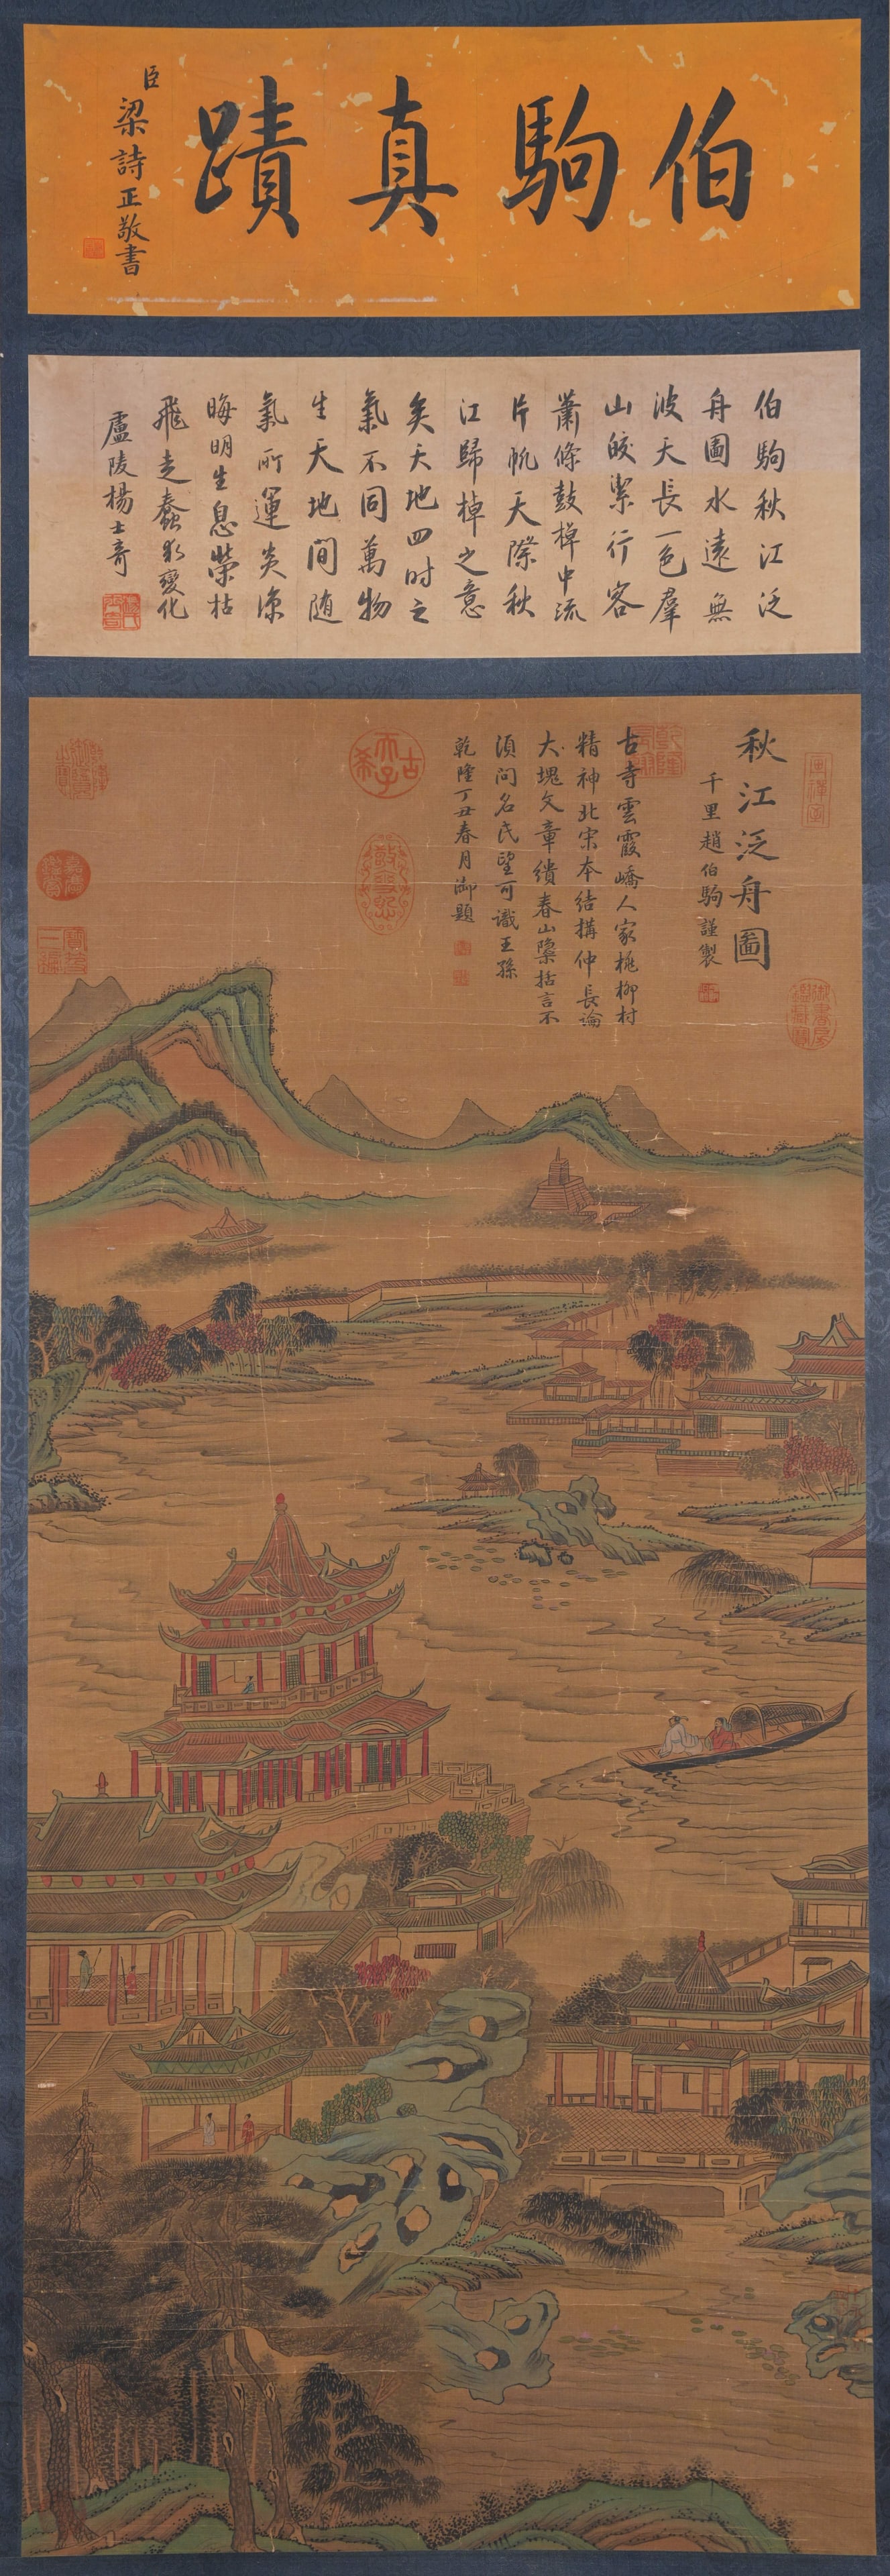 伯駒真蹟
臣梁詩正敬書
伯駒秋江泛
舟圖水遠無
波天長一色群
山皎潔行客
蕭條鼓棹中流
片帆天際秋
江歸棹之意
矣天地四时之
氣不同萬物
生天地間随
氣所運炎涼
晦明生息榮枯
飛走蠢動變化
盧陵楊士奇
秋江泛舟圖
千里趙伯駒謹製
古寺雲霞嶠人家桃柳村
精神北宋本結構仲長論
大塊文章繢春山檃括言不
須問名氏望可識王孫
乾隆丁丑春月御題
乾隆
古
天子
希